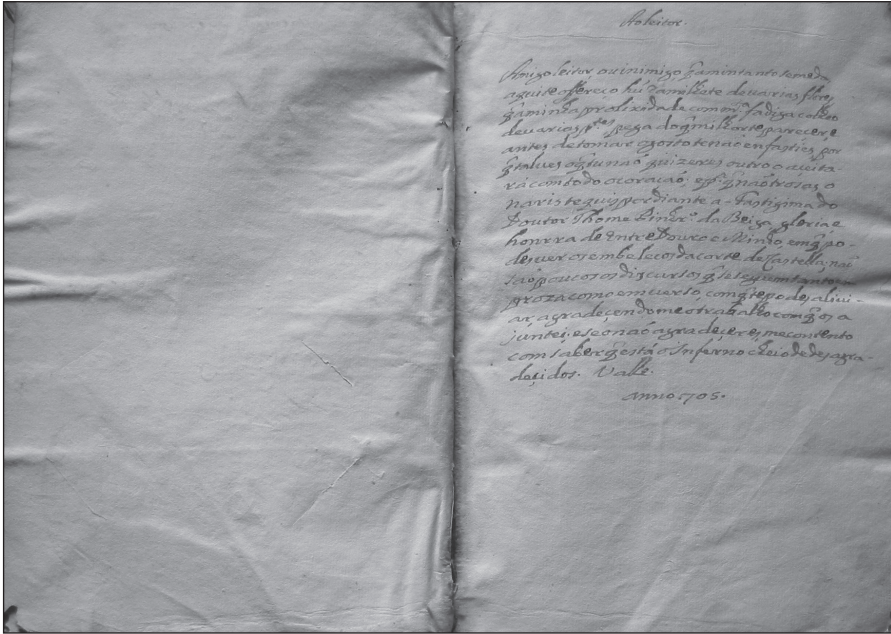 Ao leitor.
Amigo leitor, ou inimigo q̃ a mim tanto se me da,
aqui te offereço hũ Ramilhete de varias flores,
q̃ a minha prolixidade com m.ta fadiga colheo
de varias p.tes pega do q̃ milhor te parecer, e
antes de tomar o gosto te não enfasties, por
q̃ talves o q̃ tu não quizeres outro o aceita-
rá com todo o coração; e q̃ não trosas o
naris te quis por diante a
Doutor Thome Pinhr.o da Beiga gloria e
honrra de Entre Douro e Minho, em q̃ po-
des ver os embelecos da corte de Castella; naõ
saõ poucos os discursos q̃ se seguem tanto em
proza como em verso, com q̃ te podes alivi-
ar, agradeçendome o trabalho com q̃ os a
juntei, e se o naõ agradeçeres, me contento
com saber q̃ está o Inferno cheio de desagra-
deçidos. Valle.
Anno 1705.